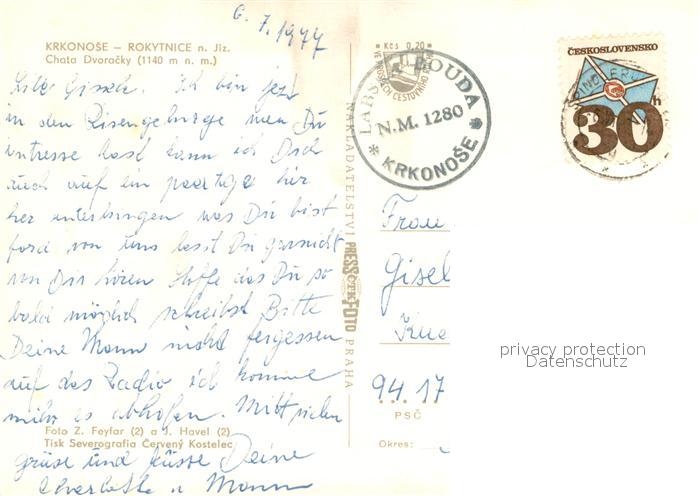 6.7.1977
KRKONOŠE – ROKYTNICE n. Jiz.
Chata Dvoračky (1140 m n. m.)
Ich bin jezt
in den Risengeburge wen Du
intresse hast kann ich Dich
auch auf ein paar tage hir
her unterbringen was Du bist
ford von uns lesst Du garnicht
von Dir hören Hoffe das Du so
bald möglich schreibst Bitte
Deine Mann nicht fergessen
auf das Radio ich komme
mihr es abhohen. Mitt vielen
Foto Z. Feyfar (2) a J. Havel (2)
Tisk Severografia Červený Kostelec
grüse und küsse Deine
u Mann
NAKLADATELSTVÍ PRESSFOTO PRAHA
Kčs 0,20
LABSKÁ BOUDA
N.M. 1280
* KRKONOŠE *
ČESKOSLOVENSKO
30h
Frau
Gisel
94.17
PSČ
Okres:
privacy protection
Datenschutz